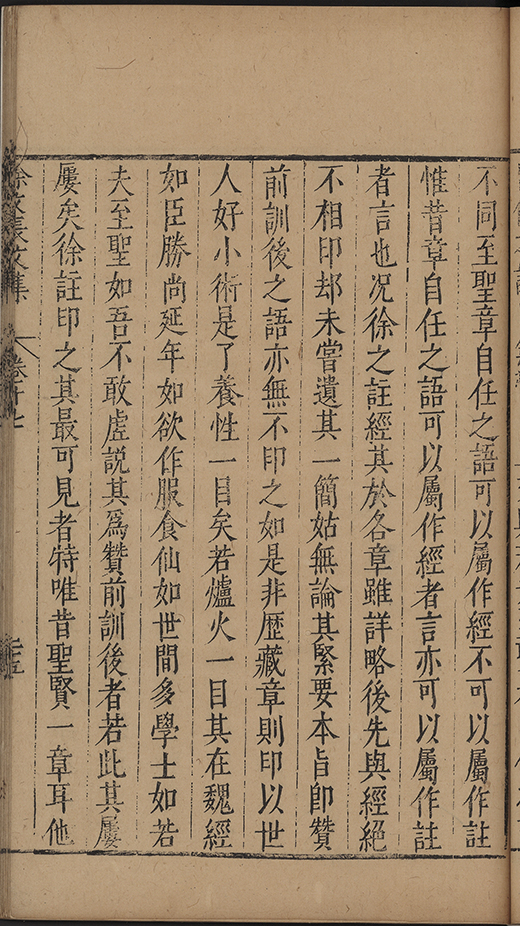 不同至聖章自任之語可以屬作經不可以屬作註
惟昔章自任之語可以屬作經者言亦可以屬作註
者言也况徐之註經其於各章雖詳略後先與經絕
不相印却未嘗遺其一簡姑無論其緊要本旨卽贊
前訓後之語亦無不印之如是非歷藏章則印以世
人好小術是了養性一目矣若爐火一目其在魏經
如臣勝尚延年如欲作服食仙如世間多學士如若
夫至聖如吾不敢虛説其爲贊前訓後者若此其屢
屢矣徐註印之其最可見者特唯昔聖賢一章耳他
徐文長文集 卷十七 三五